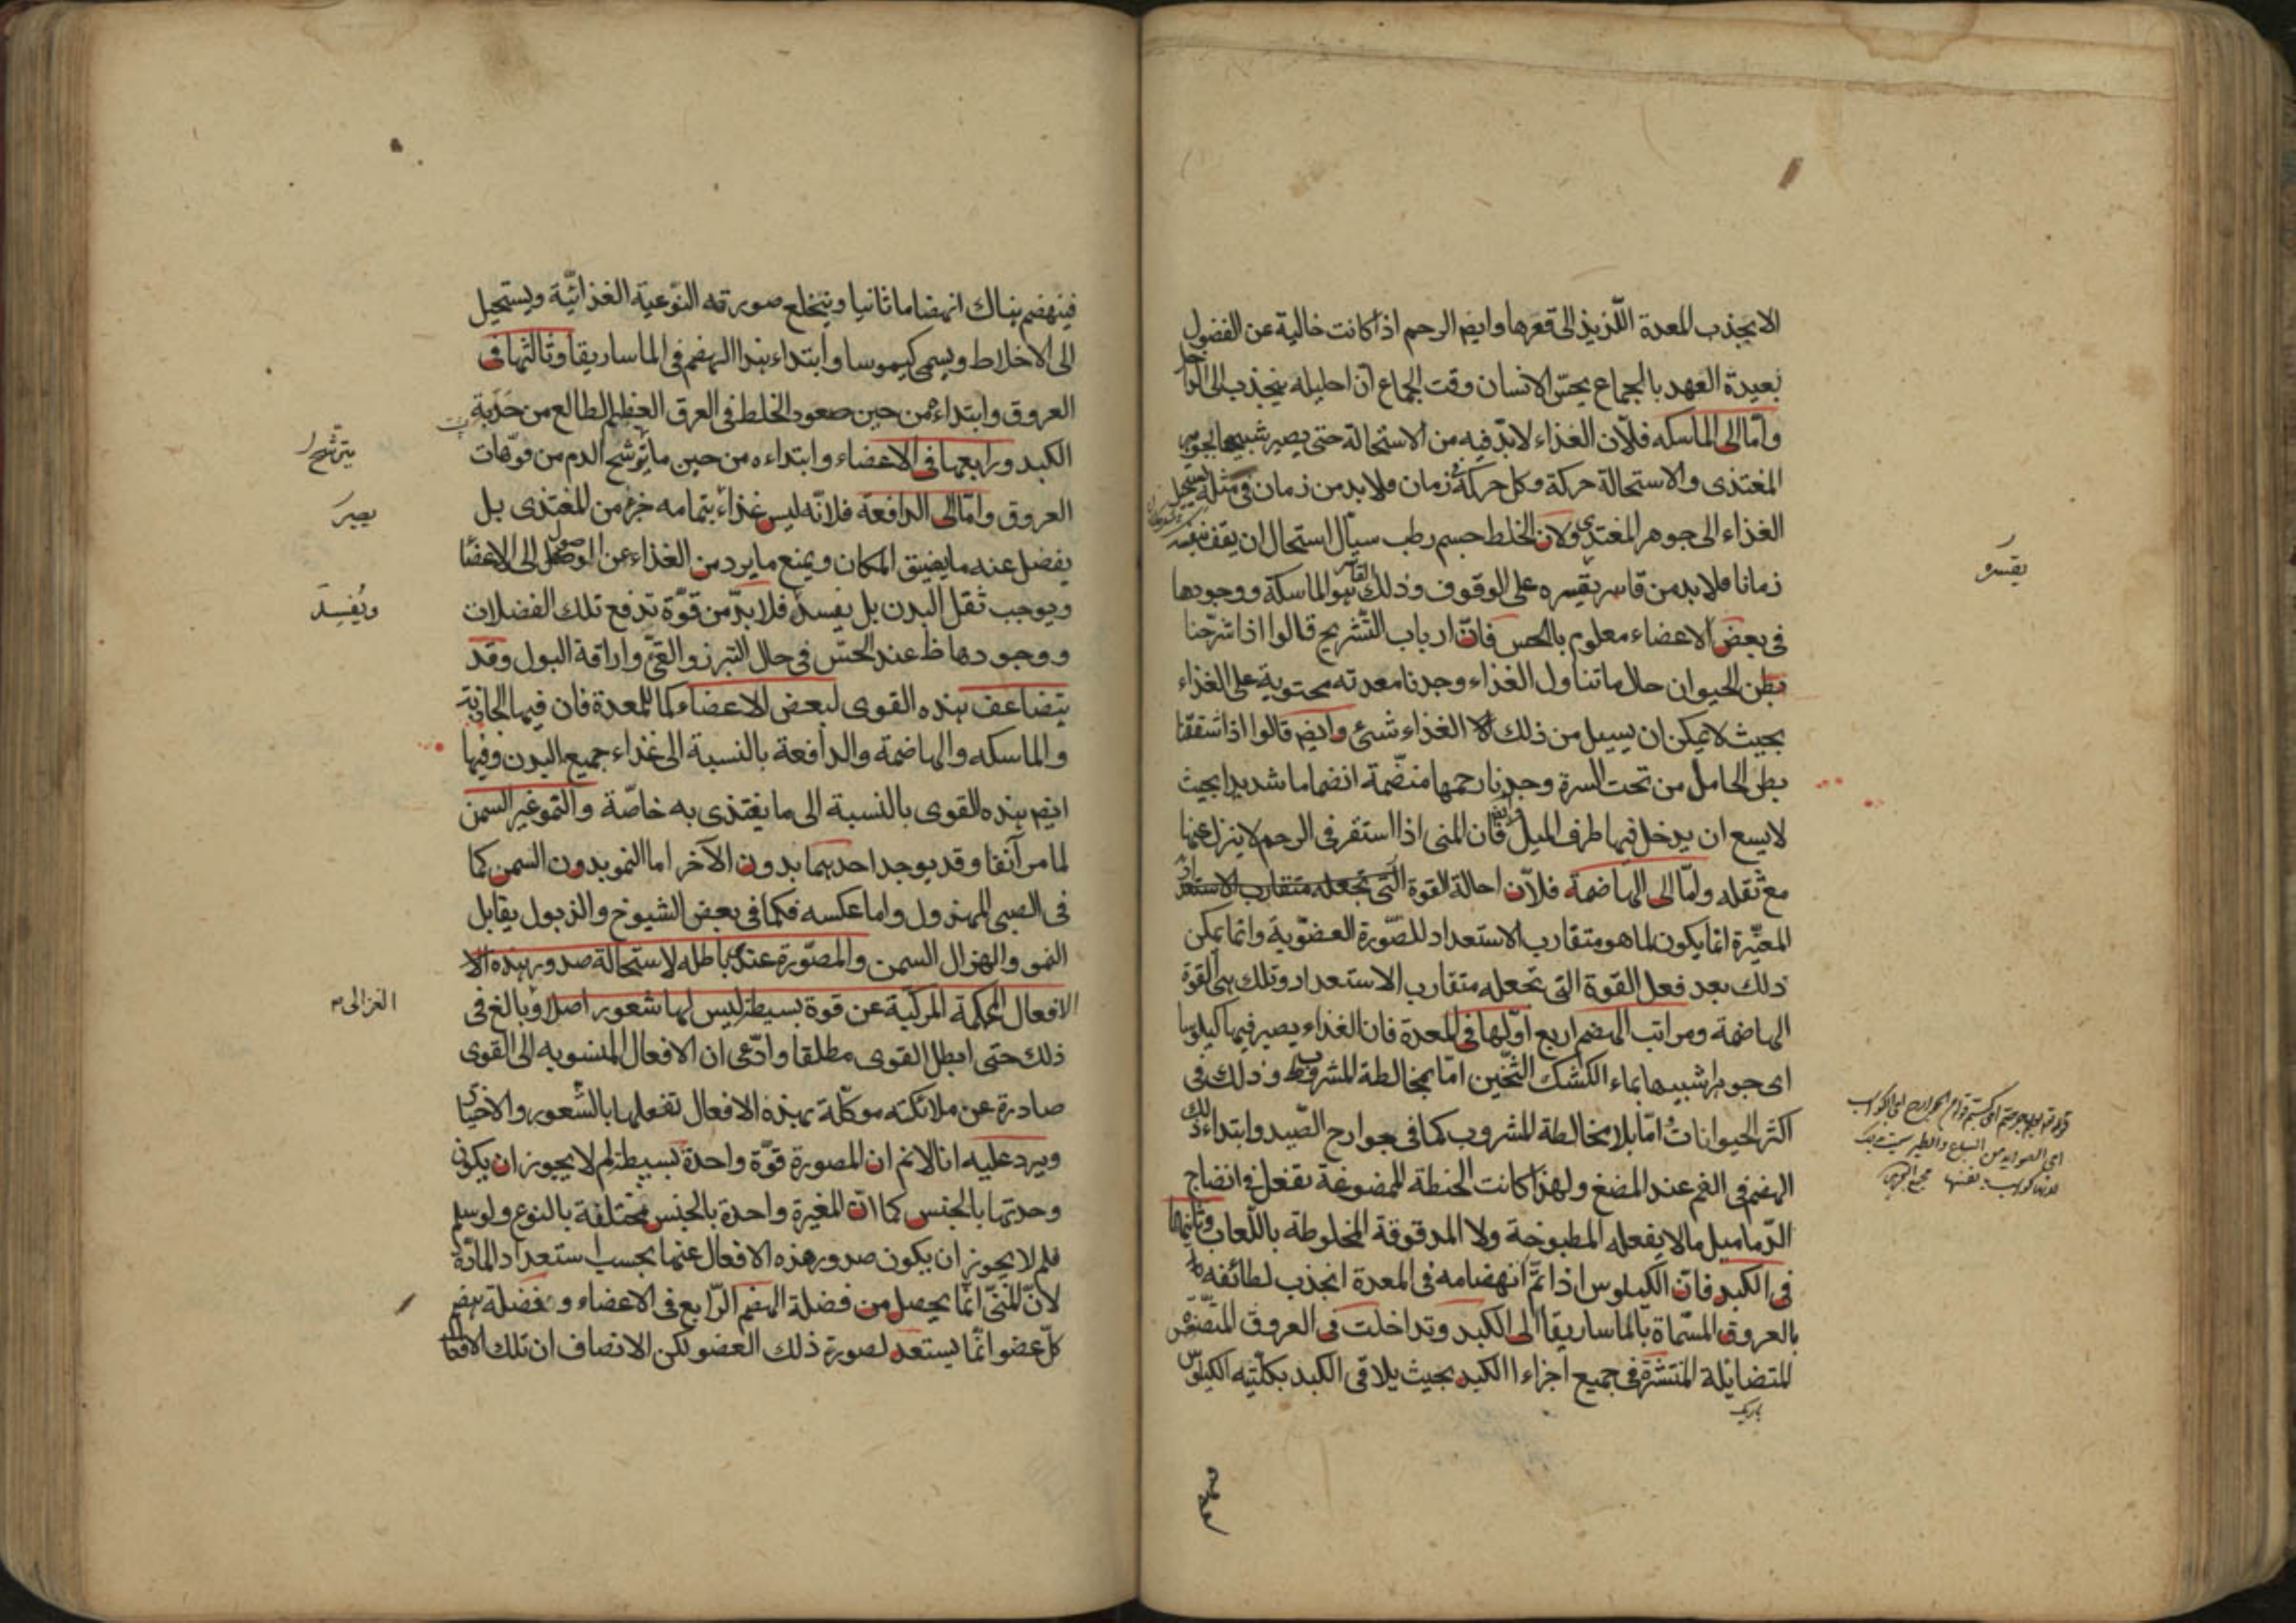 الا بجذب المعدة اللذيذ الى قعرها وايضا الرحم اذا كانت خالية عن الفضول
بعيدة العهد بالجماع يحسّ الانسان وقت الجماع ان احليله ينجذب الى الداخل
وامّا الى الماسكه فلانّ الغذاء لا بدّ فيه من الاستحالة حتى يصير شبيها بجوهر
المغتذى والاستحالة حركة وكل حركة فى زمان فلا بد من زمان فى مثله يستحيل
الغذاء الى جوهر المغتذى ولان الخلط جسم رطب سيّال استحال ان يقف بنفسه
زمانا فلا بد من قاسر يقسره على الوقوف وذلك القاسر هو الماسكة ووجودها
فى بعض الاعضاء معلوم بالحس فانّ ارباب التّشريح قالوا اذا شرّحنا
بطن الحيوان حال ما تناول الغذاء وجدنا معدته محتوية على الغذاء
بحيث لا يمكن ان يسيل من ذلك الغذاء شئ وايضا قالوا اذا شققنا
بطن الحامل من تحت السرة وجدنا رحمها منضّمة انضماما شديدا بحيث
لا يسع ان يدخل فيها طرف الميل فان المنى اذا استقر فى الرحم لا ينزل عنها
مع ثقله وامّا الى الهاضمة فلانّ احالة القوة التى تجعله متقارب الاستعداد
المغيّرة انما يكون لما هو متقارب الاستعداد للصّورة العضوّية وانما يمكن
ذلك بعد فعل القوة التى تجعله متقارب الاستعداد وتلك هى القوة
الهاضمة ومراتب الهضم اربع اوّلها فى المعدة فان الغذاء يصير فيها كيلوسا
اى جوهرا شبيها بماء الكشك الثّخين امّا بمخالطة المشروب وذلك فى
اكثر الحيوانات وامّا بلا مخالطة المشروب كما فى جوارح الصّيد وابتداء ذلك
الهضم فى الفم عند المضغ ولهذا كانت الحنطة الممضوغة تفعل فى انضاج
الدّماميل ما لا يفعله المطبوخة ولا المدقوقة المخلوطة باللّعاب وثانيها
فى الكبد فانّ الكيلوس اذا تمّ انهضامه فى المعدة انجذب لطائفه
بالعروق المسّماة بالماساريقا الى الكبد وتداخلت فى العروق المتصغّرة
المتضايلة المنتشرة فى جميع اجزاء الكبد بحيث يلاقى الكبد بكلّيته الكيلوس
باريك
يقسره
فينهضم هناك انهضاما ثانيا وينخلع صورته النوّعيّة الغذائيّة ويستحيل
الى الاخلاط ويسمى كيموسا وابتداء هذا الهضم فى الماساريقا وثالثها فى
العروق وابتداءه من حين صعود الخلط فى العرق العظيم الطالع من حدبة
الكبد ورابعها فى الاعضاء وابتداءه من حين ما يترشح الدم من فوّهات
العروق وامّا الى الدافعة فلانّه ليس غذاء بتمامه جزء من المغتذى بل
يفضل عنه ما يضيق المكان ويمنع ما يرد من الغذاء عن الوصول الى الاعضا
ويوجب ثقل البدن بل يفسد فلا بدّ من قوّة تدفع تلك الفضلات
ووجودها ظ عند الحسّ فى حال التبرز والقئ واراقة البول وقد
يتضاعف هذه القوى لبعض الاعضاء كما للمعدة فان فيها الجاذبة
والماسكه والهاضمة والدافعة بالنسبة الى غذاء جميع البدن وفيها
ايضا هذه القوى بالنسبة الى ما يغتذى به خاصّة والنمو غير السمن
لما مر آنفا وقد يوجد احدهما بدون الآخر اما النمو بدون السمن كما
فى الصبى المهزول واما عكسه فكما فى بعض الشيوخ والذبول يقابل
النمو والهزال السمن والمصوّرة عندى باطله لاستحالة صدور هذه الا
الافعال المحكمة المركّبة عن قوة بسيطة ليس لها شعور اصلا وبالغ فى
ذلك حتى ابطل القوى مطلقا وادّعى ان الافعال المنسوبه الى القوى
صادرة عن ملائكته موكّلة بهذه الافعال تفعلها بالشّعور والاختيار
ويرد عليه انا لانم ان المصورة قوّة واحدة بسيطة لم لا يجوز ان يكون
وحدتها بالجنس كما انّ المغيرة واحدة بالجنس مختلفة بالنوع ولو سلم
فلم لا يجوز ان يكون صدور هذه الافعال عنها بحسب استعداد المادّة
لانّ المنىّ انّما يحصل من فضلة الهضم الرّابع فى الاعضاء وفضلة هضم
كلّ عضو انّما يستعد لصورة ذلك العضو لكن الانصاف ان تلك الافعال
يترشح
يصير
ويُفسِدَ
الغزالى